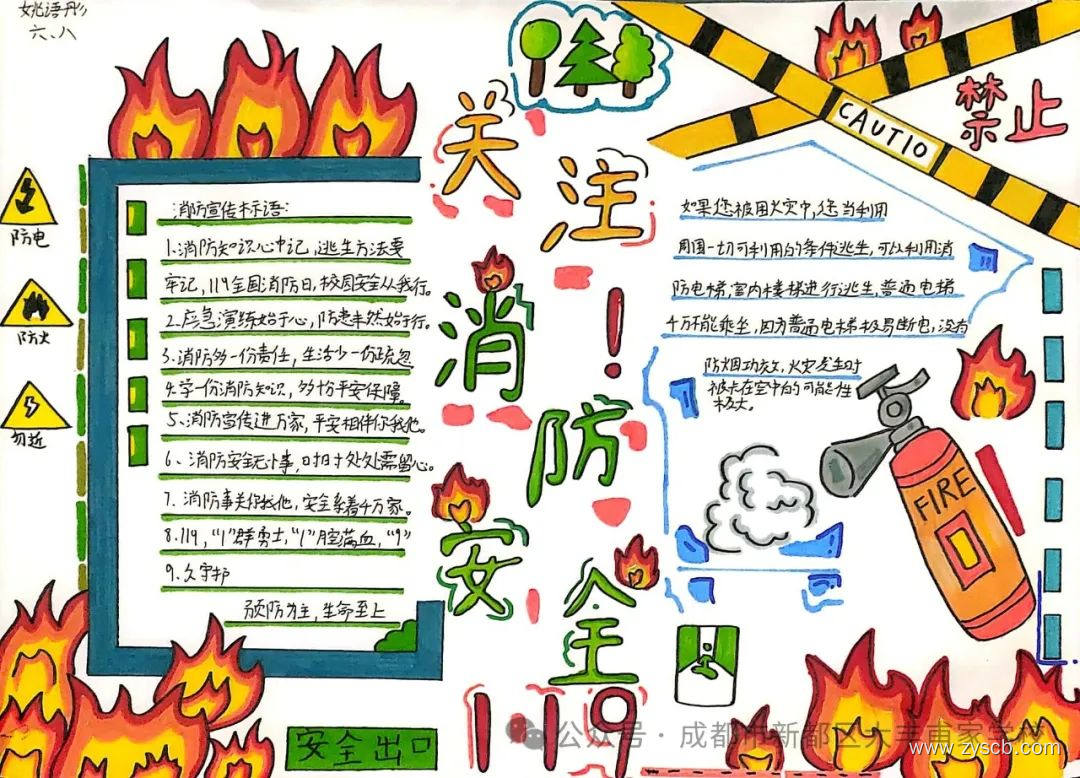 姚语彤
六、八
防电
防火
勿近
消防宣传标语：
1.消防知识心中记，逃生方法要
牢记，119全国消防日，校园安全从我行。
2.应急演练始于心，防患未然始于行。
3.消防多一份责任，生活少一份疏忽
4.学一份消防知识，多份平安保障。
5、消防宣传进万家，平安相伴你我他。
6、消防安全无小事，时时处处需留心。
7.消防事关你我他，安全系着千万家。
8.119，“1”群勇士，“1”腔满血，“9”
9.久守护
预防为主，生命至上
安全出口
关注消防安全！
119
CAUTIO
禁止
如果您被困火灾中，您当利用
周围一切可利用的条件逃生，可以利用消
防电梯，室内楼梯进行逃生，普通电梯
千万不能乘坐，因为普通电梯极易断电，没有
防烟功效，火灾发生时
被卡在空中的可能性
极大。
FIRE
公众号·成都市新都区大丰甫家学校
www.zyscb.com